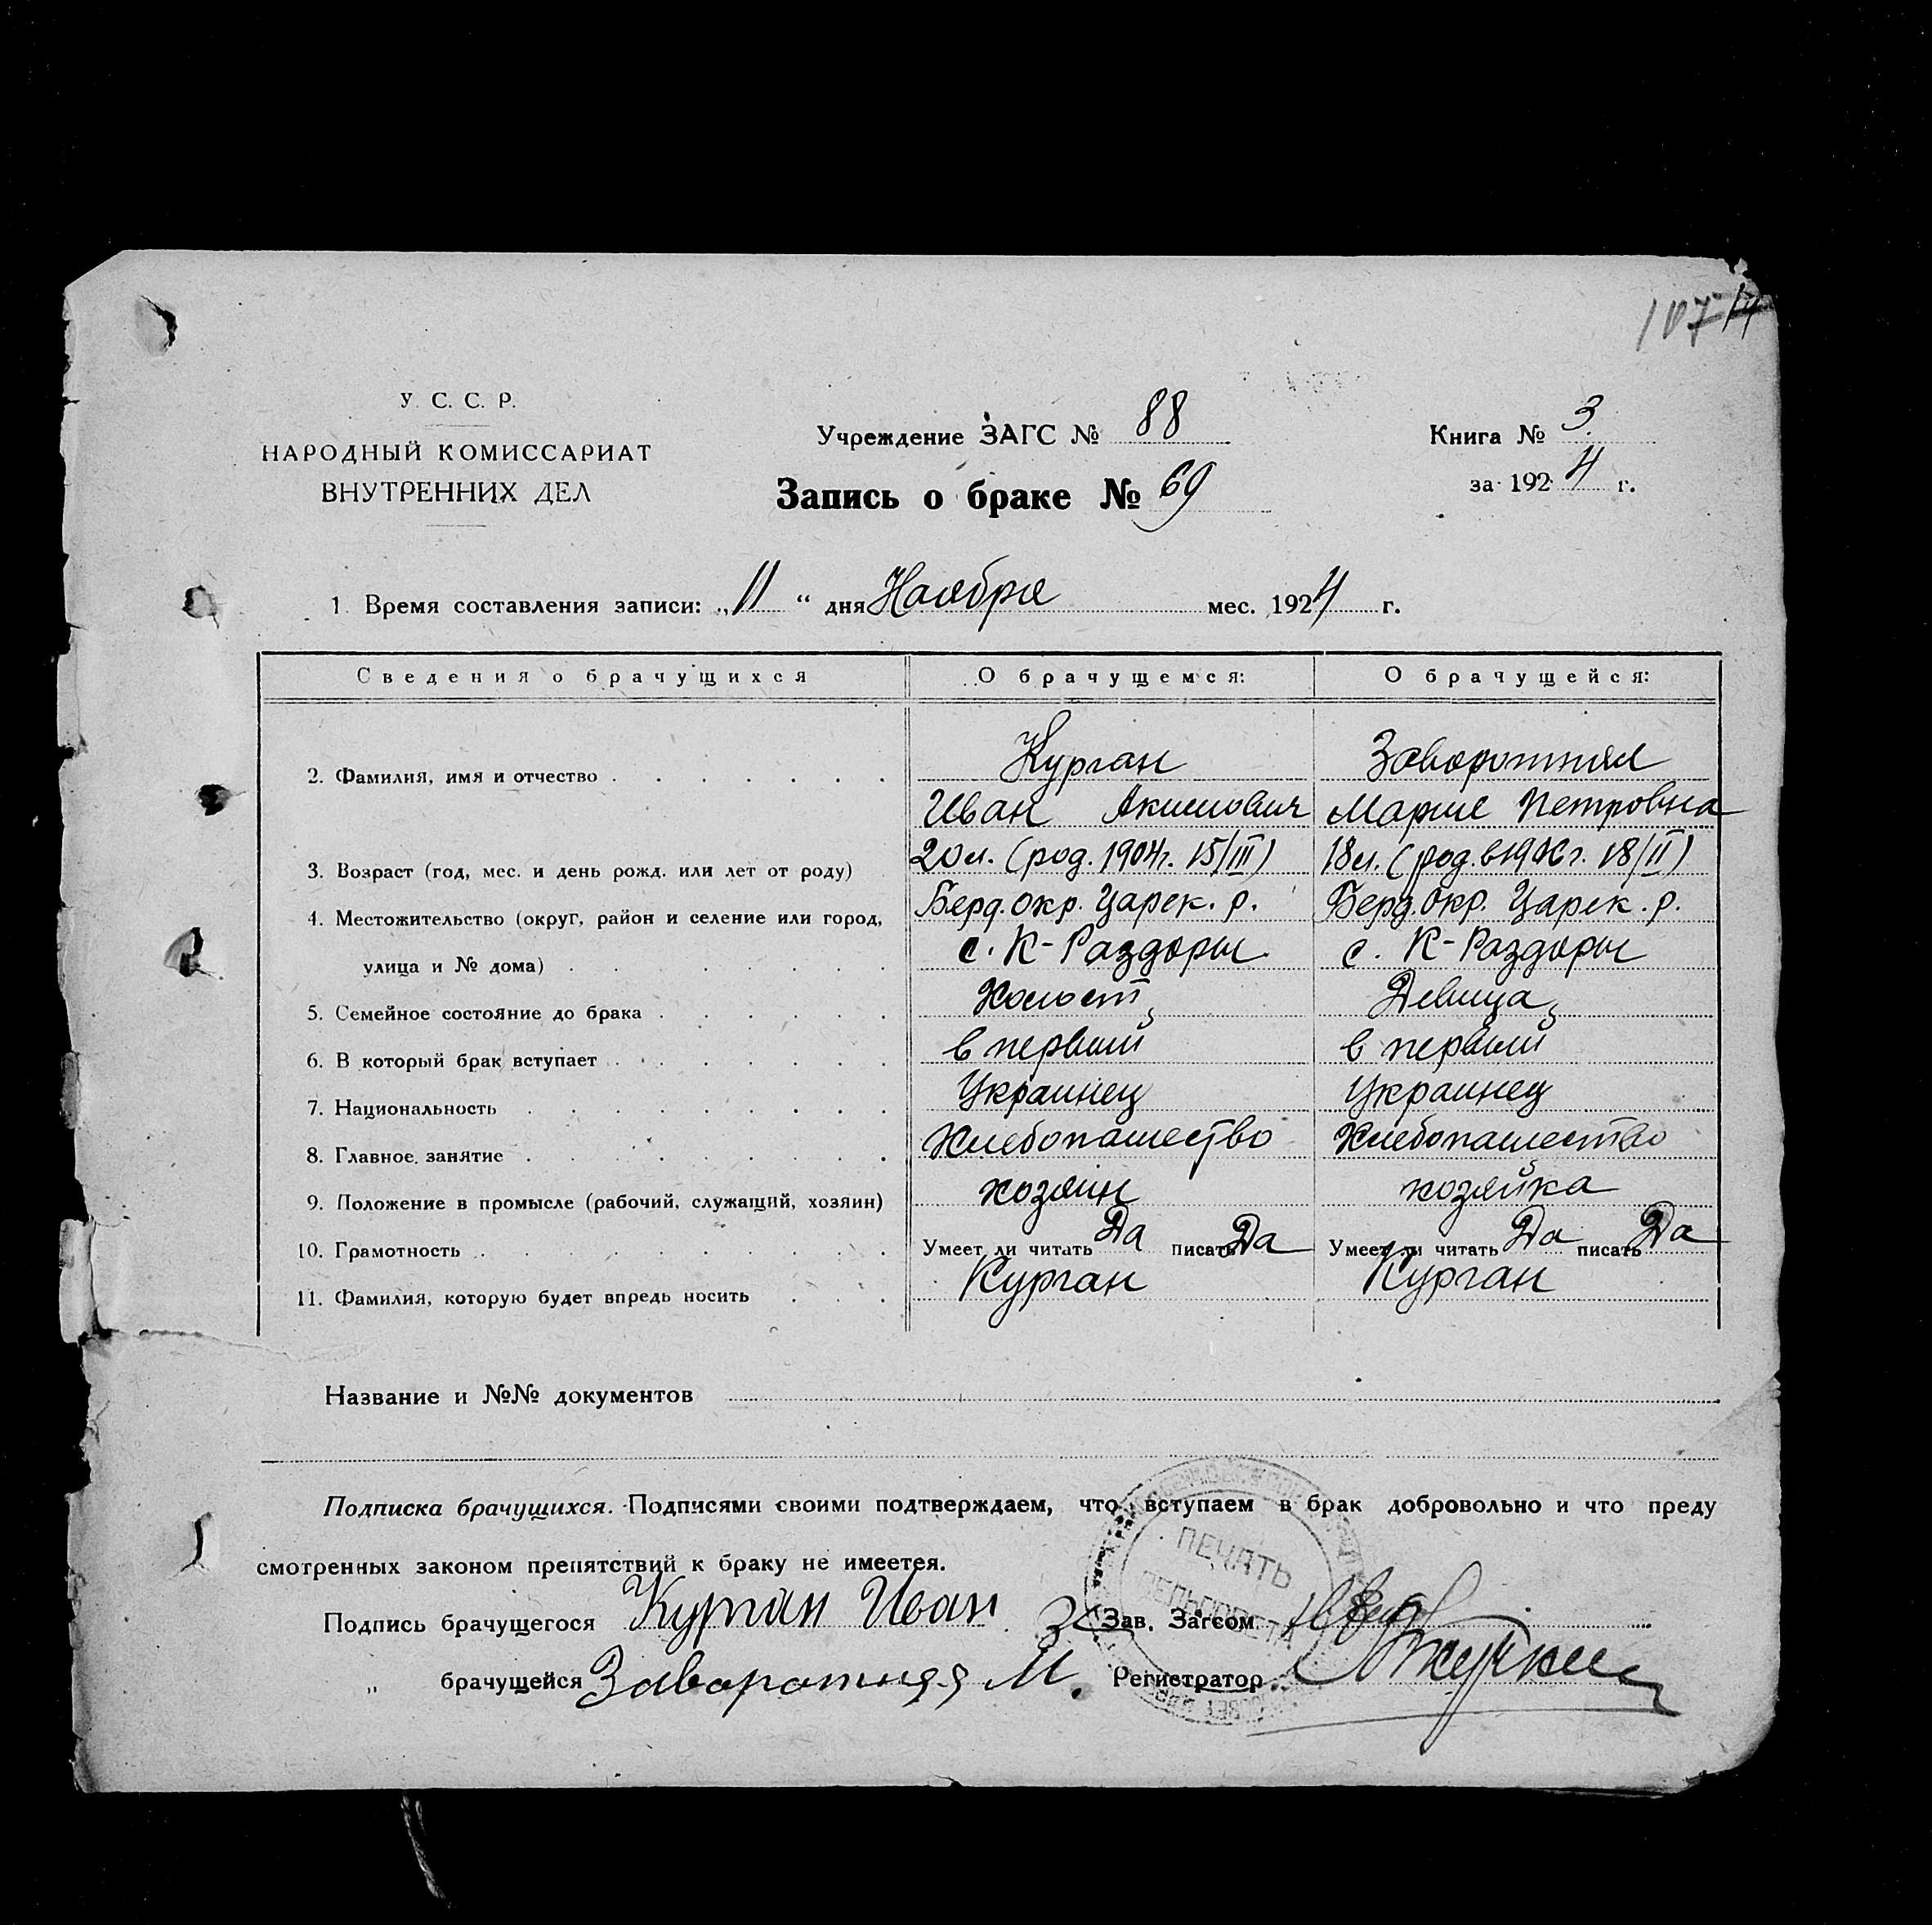 107
У. С. С. Р.
НАРОДНЫЙ КОМИССАРИАТ
ВНУТРЕННИХ ДЕЛ
Учреждение ЗАГС № 88
Запись о браке № 69
Книга № 3
за 1924 г.
1. Время составления записи: „11“ дня Ноября мес. 1924 г.
Сведения о брачущихся О брачущемся: О брачущейся:
2. Фамилия, имя и отчество Курган Заворотняя
Иван Акимович Мария Петровна
3. Возраст (год, мес. и день рожд. или лет от роду) 20 л. (род. 1904 г. 15/III) 18 л. (род. в 1906 г. 18/II)
4. Местожительство (округ, район и селение или город, Берд. окр. Царек. р. Берд. окр. Царек. р.
улица и № дома) с. К-Раздоры с. К-Раздоры
5. Семейное состояние до брака Холост Девица
6. В который брак вступает в первый в первый
7. Национальность Украинец Украинец
8. Главное занятие Хлебопашество Хлебопашество
9. Положение в промысле (рабочий, служащий, хозяин) хозяин хозяйка
10. Грамотность Умеет ли читать Да писать Да Умеет ли читать Да писать Да
11. Фамилия, которую будет впредь носить Курган Курган
Название и №№ документов
Подписка брачущихся. Подписями своими подтверждаем, что вступаем в брак добровольно и что преду
смотренных законом препятствий к браку не имеется.
Подпись брачущегося Курган Иван Зав. Загсом
„ брачущейся Заворотняя М. Регистратор
ПЕЧАТЬ
СЕЛЬСОВЕТА